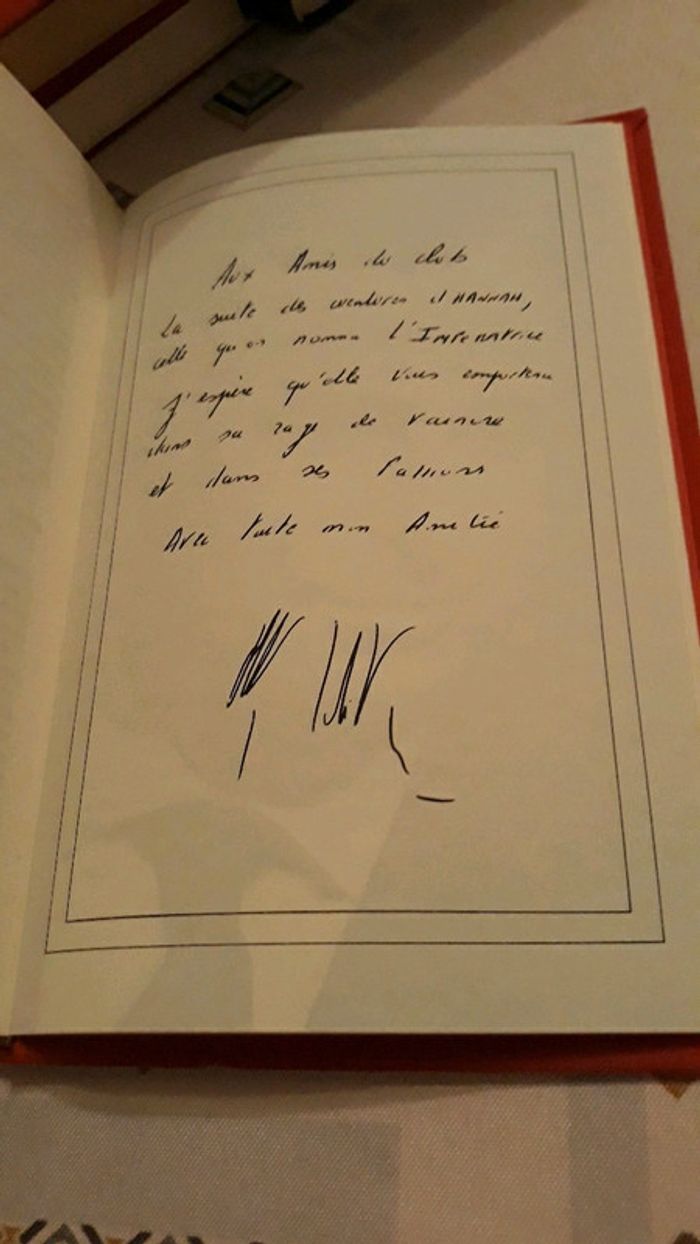 Aux Amis du club
La suite des aventures d'HANNAH,
celle qu'on nomma l'IMPERATRICE
J'espère qu'elle vous emportera
dans sa rage de vaincre
et dans ses Passions
Avec toute mon Amitié